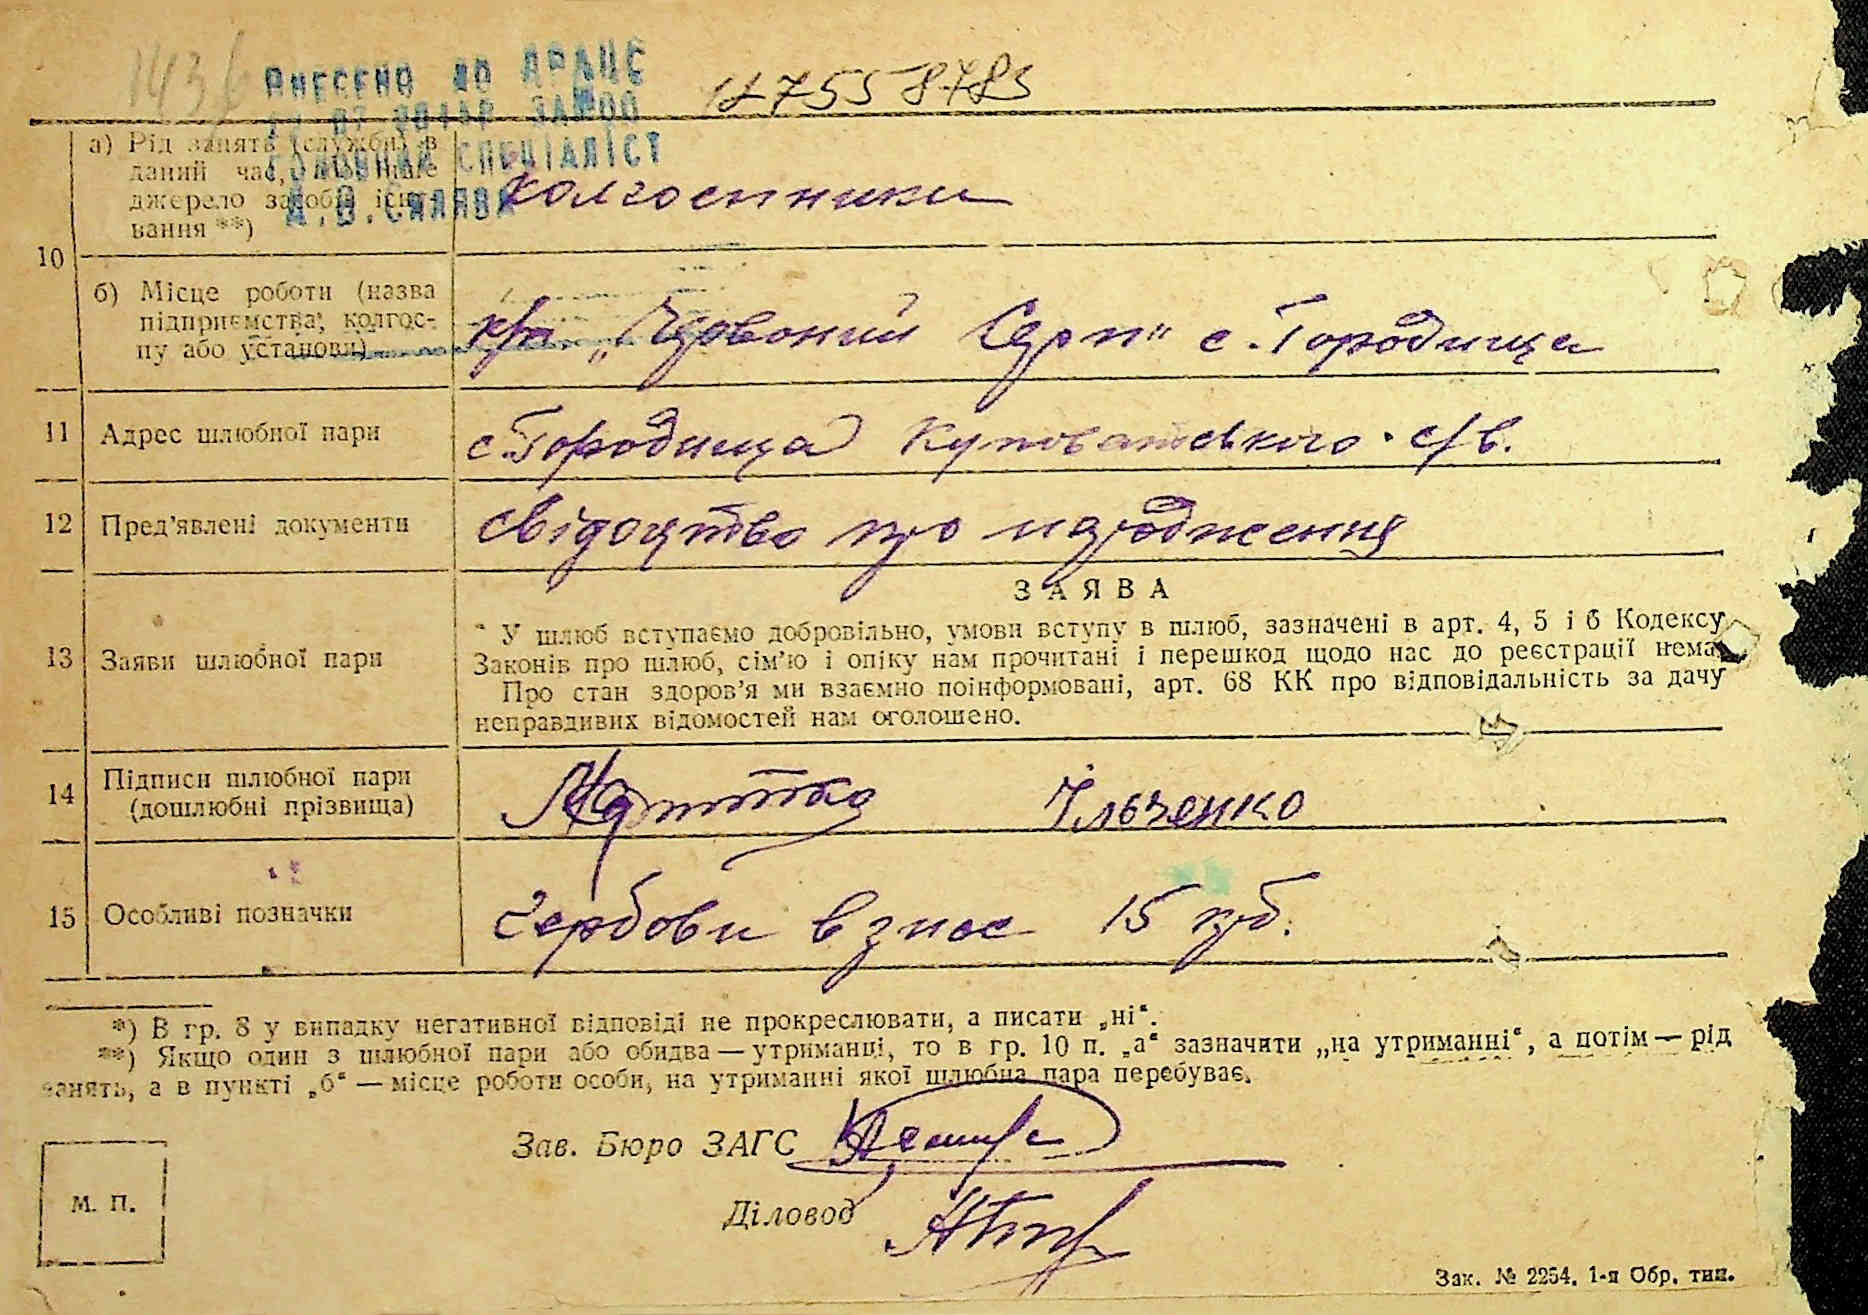 1436
ВНЕСЕНО ДО ДРАЦС
1875558783
СПЕЦІАЛІСТ
а) Рід занять (служби) в
даний час,
джерело засобів існу-
вання **)
колгоспники
10
б) Місце роботи (назва
підприємства, колгос-
пу або установи)
к/п „Червоний Серп“ с. Городища
11 Адрес шлюбної пари
с. Городища Куповатського с/в.
12 Пред'явлені документи
свідоцтво про народження
ЗАЯВА
13 Заяви шлюбної пари
У шлюб вступаємо добровільно, умови вступу в шлюб, зазначені в арт. 4, 5 і 6 Кодексу
Законів про шлюб, сім'ю і опіку нам прочитані і перешкод щодо нас до реєстрації нема.
Про стан здоров'я ми взаємно поінформовані, арт. 68 КК про відповідальність за дачу
неправдивих відомостей нам оголошено.
14 Підписи шлюбної пари
(дошлюбні прізвища)
Ільченко
15 Особливі позначки
Гербови взнос 15 крб.
*) В гр. 8 у випадку негативної відповіді не прокреслювати, а писати „ні“.
**) Якщо один з шлюбної пари або обидва — утриманці, то в гр. 10 п. „а“ зазначити „на утриманні“, а потім — рід
занять, а в пункті „б“ — місце роботи особи, на утриманні якої шлюбна пара перебуває.
Зав. Бюро ЗАГС
М. П.
Діловод
Зак. № 2254. 1-я Обр. тип.